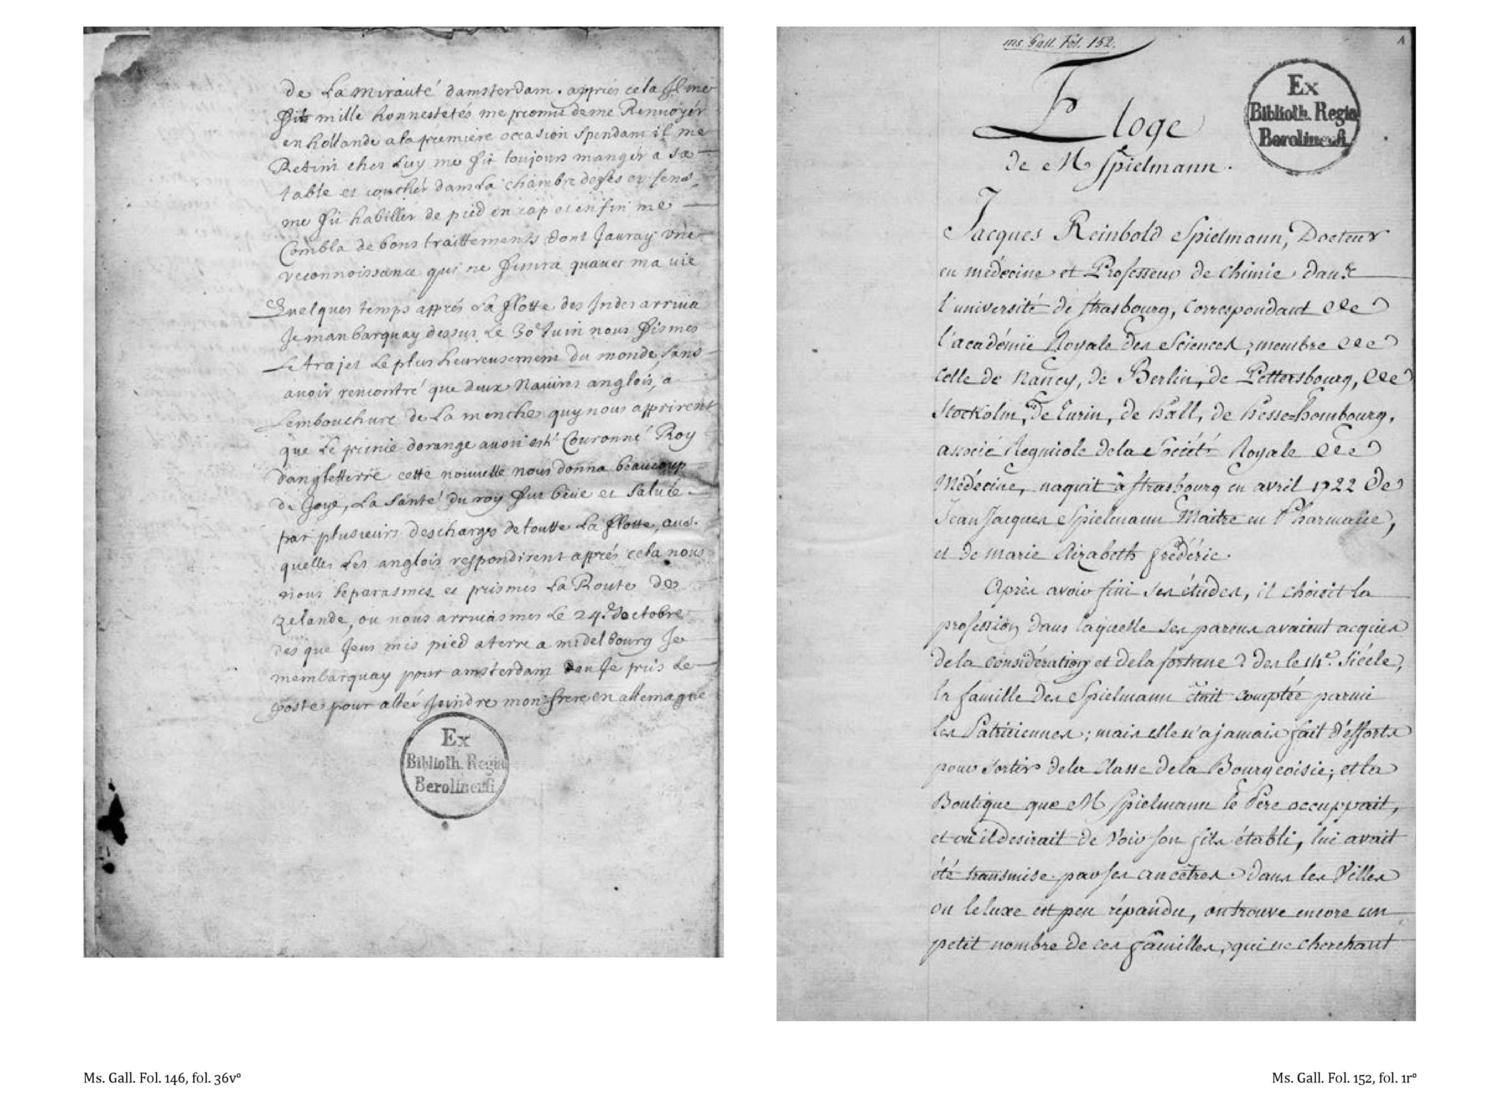 de La mirauté damsterdam. apprés cela Il me
fit mille honnestetés me promis de me Renvoyér
en hollande a la premiere occasion
Retins chez Luy me fit toujours mangér a sa
table et couchér dans La chambre
me fit habiller de pied en cap et enfin me
Combla de bons traittements dont Jauray une
reconnoissance qui ne finira quavec ma vie
Quelques temps apprés La flotte des Indes arriva
Je manbarquay dessus Le 30e Juin nous fismes
Le trajet Le plus heureusement du monde sans
avoir rencontré que deux Navires anglois, a
Lembouchure de La manche quy nous apprirent
que Le prince dorange avoit esté Couronné Roy
dangleterre cette nouvelle nous donna beaucoup
de Joye, La Santé du roy fut beüe et Saluée
par plusieurs descharges de toutte La flotte, aus-
quelles Les anglois respondirent apprés cela nous
nous séparasmes et prismes La Route de
Zelande, ou nous arrivasmes Le 24e doctobre
dés que Jeus mis pied a terre a midelbourg Je
membarquay pour amsterdam dou Je pris Le
poste pour allér Joindre mon frere en allemagne
Ex
Biblioth. Regia
Berolinensi.
Ms. Gall. Fol. 146, fol. 36v°
ms. Gall. Fol. 152.
1
Ex
Biblioth. Regia
Berolinensi.
Eloge
de M Spielmann.
Jacques Reinbold Spielmann, Docteur
en médecine et Professeur de chimie dans
l'université de Strasbourg, Correspondant de
l'académie Royale des Sciences, membre de
Celle de Nancy, de Berlin, de Pettersbourg, de
Stockolm, de Turin, de hall, de hesse-hombourg,
associé Regnicole de la Société Royale de
Médecine, naquit à Strasbourg en avril 1722 de
Jean Jacques Spielmann Maitre en Pharmacie,
et de marie Elizabeth frédéric.
Après avoir fini ses études, il choisit la
profession dans laquelle ses parens avaient acquis
de la considération et de la fortune ? des le 14e. Siécle,
la famille des Spielmann était comptée parmi
les Patriciennes; mais elle n'a jamais fait d'efforts
pour sortir de la Classe de la Bourgeoisie; et la
Boutique que M Spielmann le Pere occuppait,
et ou il desirait de Voir son fils établi, lui avait
été transmise par ses ancêtres. dans les Villes
ou le luxe est peu répandu, on trouve encore un
petit nombre de ces familles, qui ne cherchant
Ms. Gall. Fol. 152, fol. 1r°